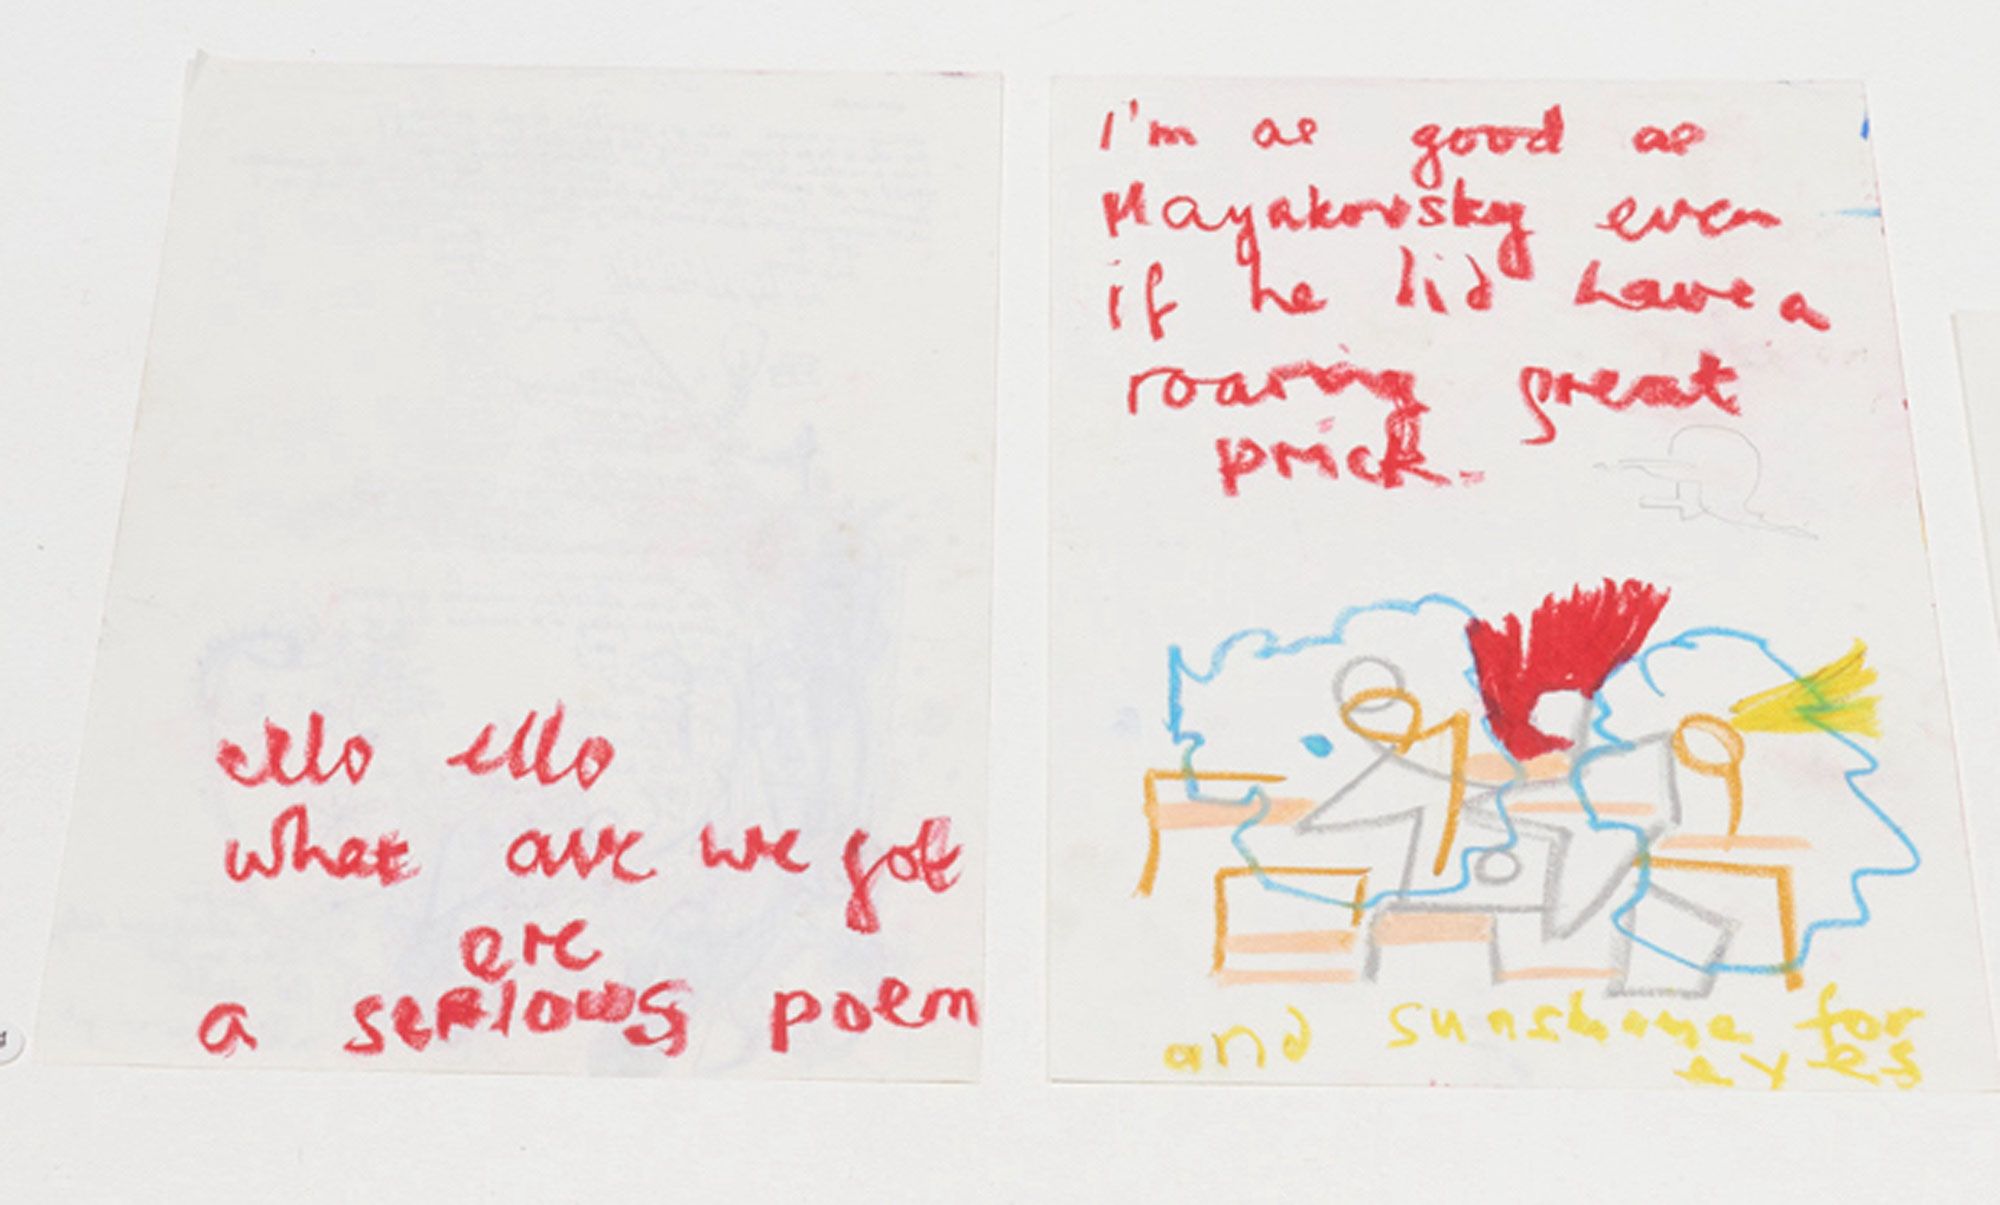 ello ello
what are we got
ere
a serious poem
I'm as good as
Mayakovsky even
if he did have a
roaring great
prick.
and sunshine for
eyes